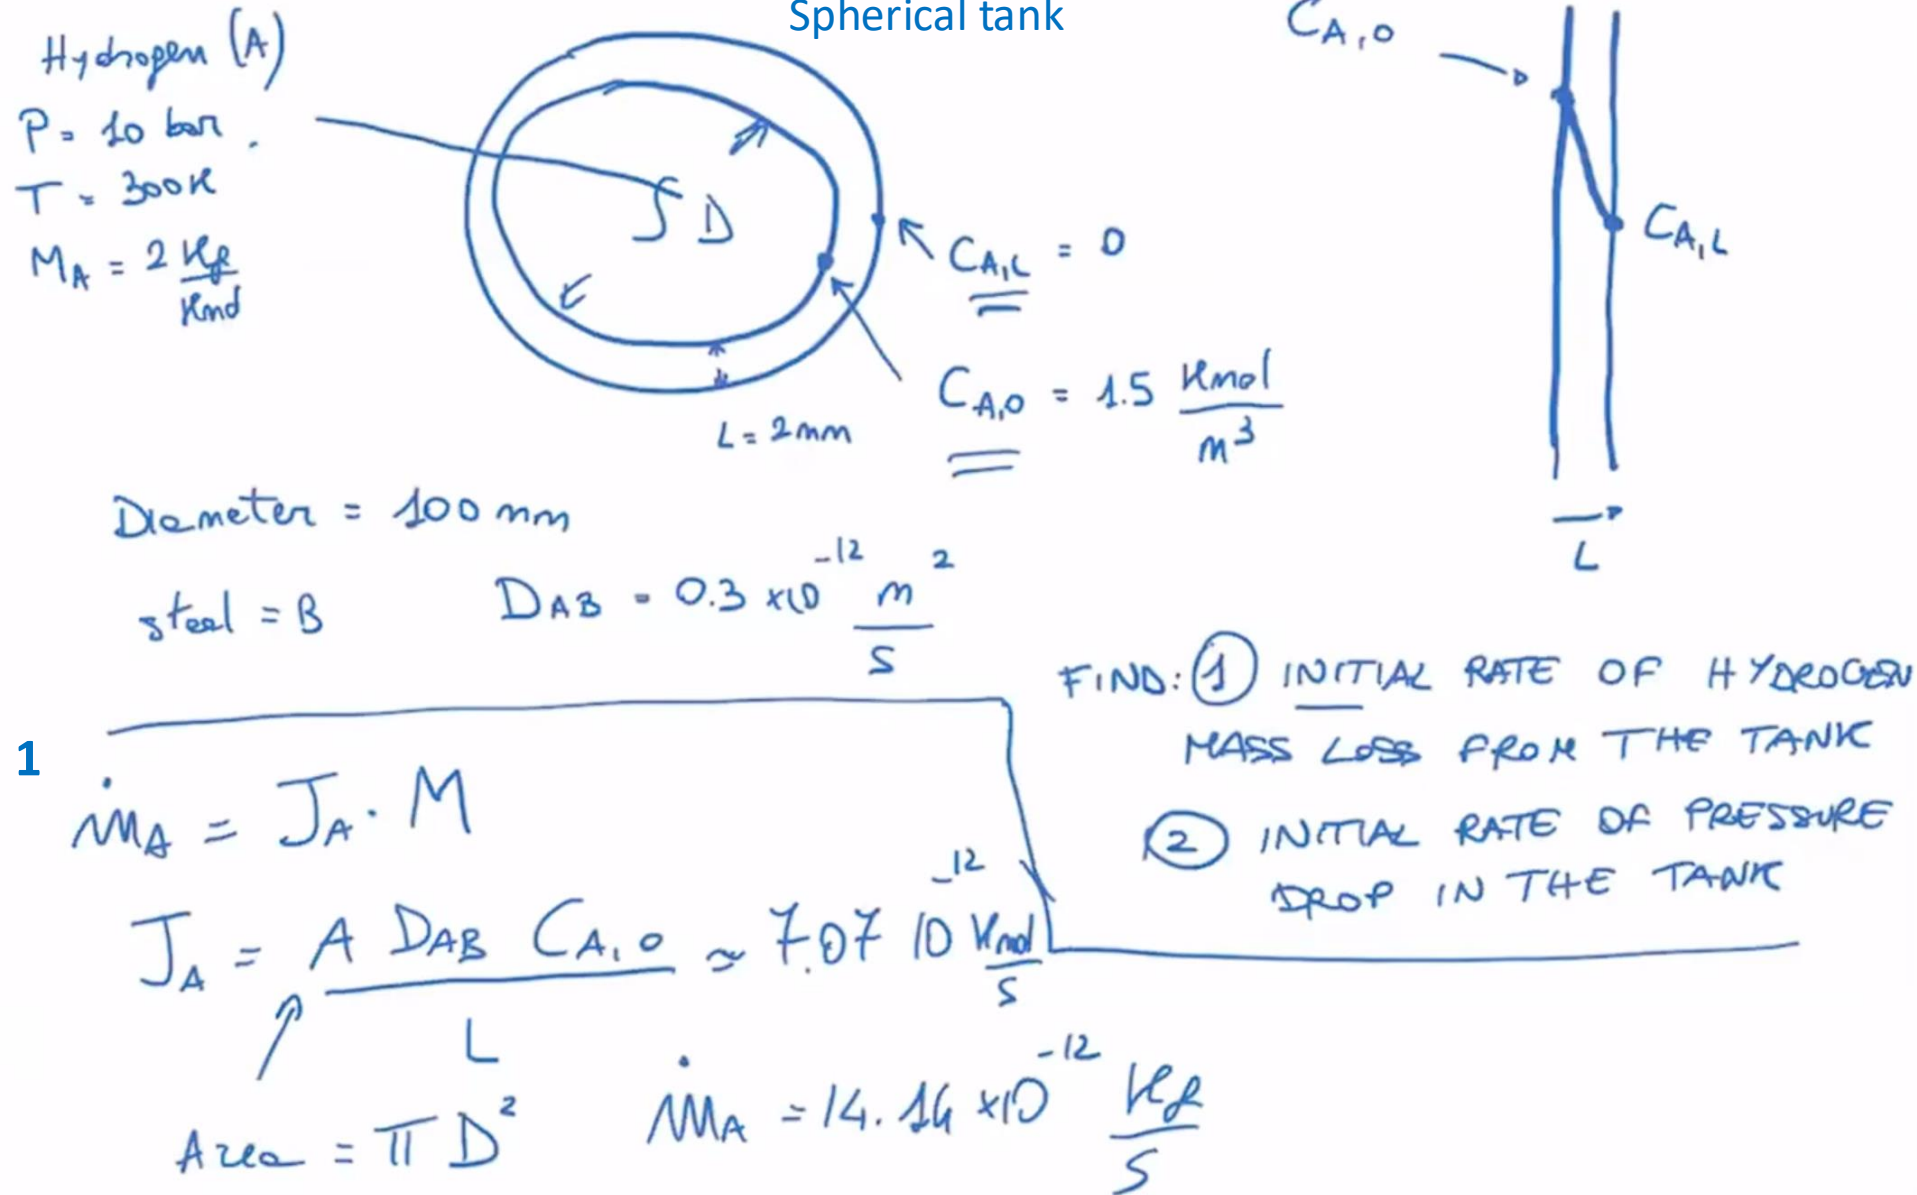 Spherical tank
Hydrogen (A)
P = 10 bar.
T = 300K
M_A = 2 Kg/Kmol
D
L = 2mm
C_A,L = 0
C_A,0 = 1.5 Kmol/m³
C_A,0
C_A,L
L
Diameter = 100 mm
steel = B
D_AB = 0.3 ×10⁻¹² m²/s
FIND: ① INITIAL RATE OF HYDROGEN
MASS LOSS FROM THE TANK
② INITIAL RATE OF PRESSURE
DROP IN THE TANK
1
ṁ_A = J_A · M
J_A = A D_AB C_A,0 / L ≈ 7.07 10⁻¹² Kmol/s
Area = π D²
ṁ_A = 14.14 ×10⁻¹² Kg/s